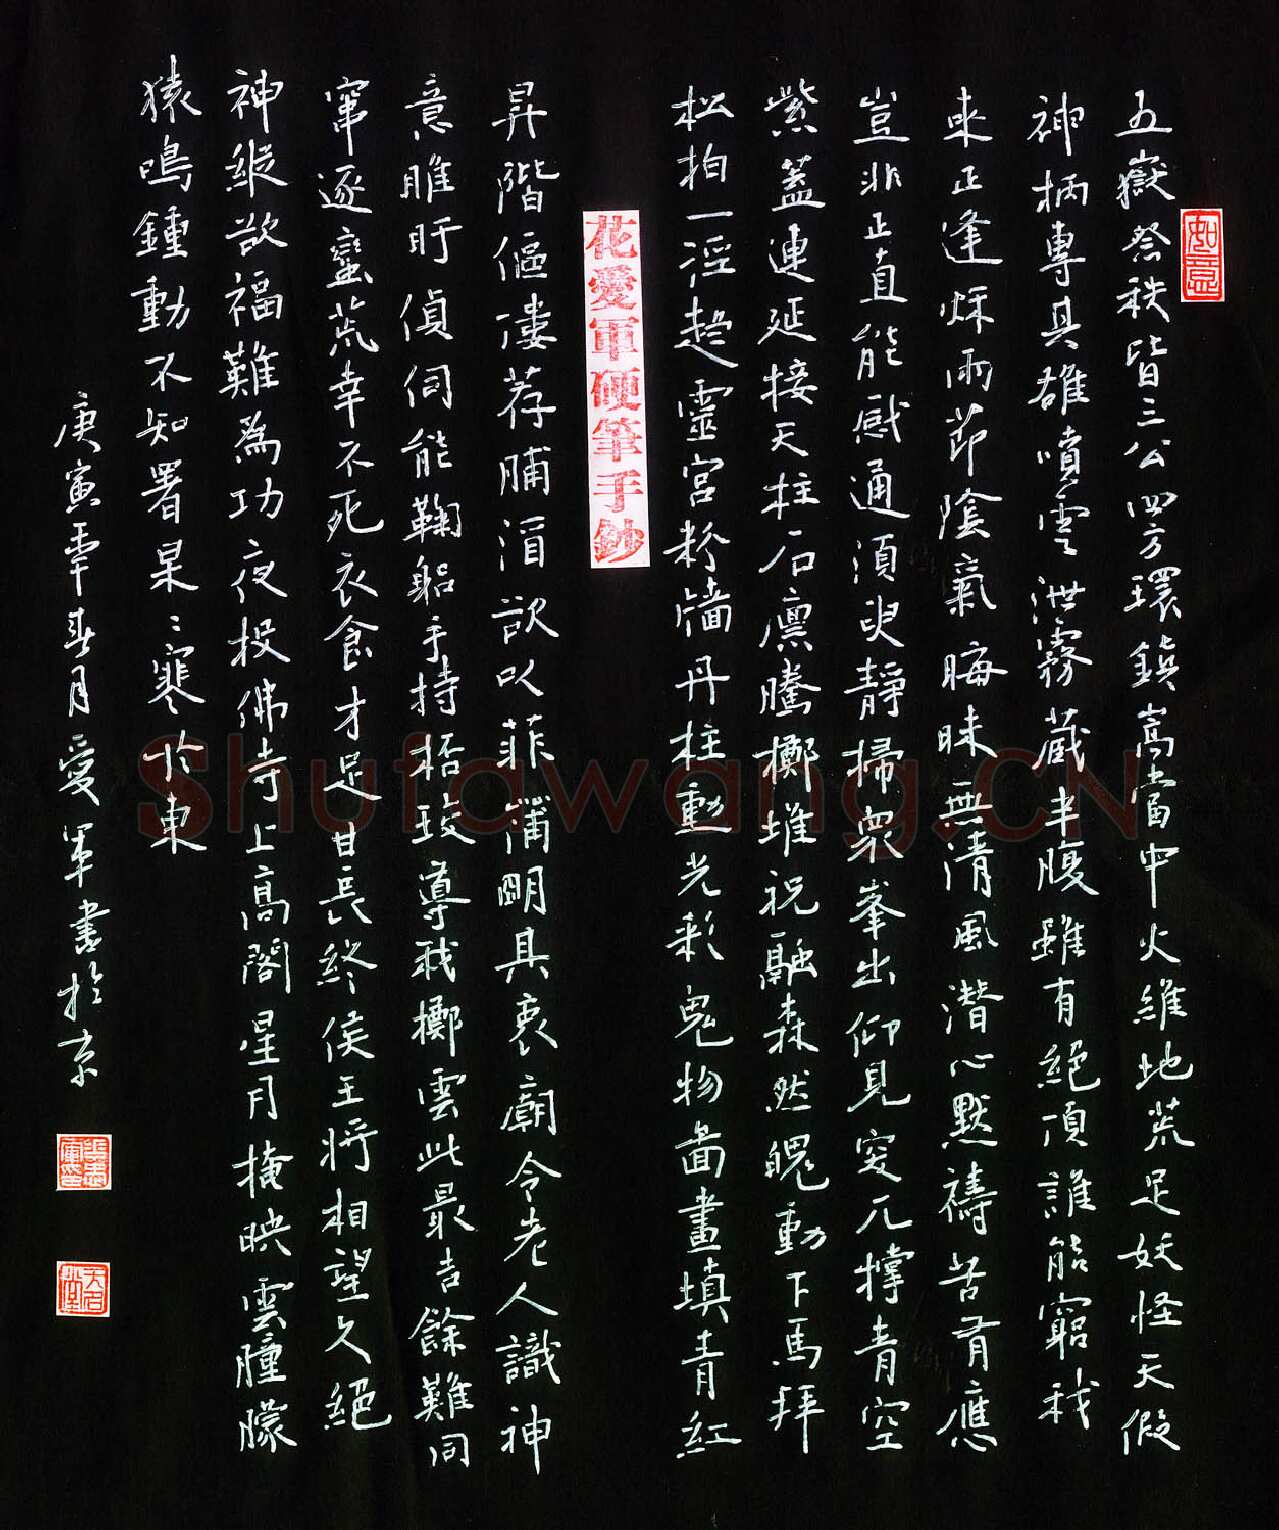 如意
五嶽祭秩皆三公四方環鎮嵩當中火維地荒足妖怪天假
神柄專其雄噴雲泄霧藏半腹雖有絕頂誰能窮我
來正逢秋雨節陰氣晦昧無清風潛心默禱若有應
豈非正直能感通須臾靜掃眾峯出仰見突兀撐青空
紫蓋連延接天柱石廩騰擲堆祝融森然魄動下馬拜
松拍一淫趋靈宮粉牆丹柱動光彩鬼物圖畫填青紅
花愛軍硬筆手鈔
昇階傴僂荐脯酒欲以菲薄明其衷廟令老人識神
意睢盱偵伺能鞠躬手持杯珓導我擲雲此最吉餘難同
竄逐蠻荒幸不死衣食才足甘長終侯王將相望久絕
神縱欲福難為功夜投佛寺上高閣星月掩映雲朣朦
猿鳴鍾動不知署杲〻寒於東
庚寅年春月愛軍書於京
Shufawang.CN